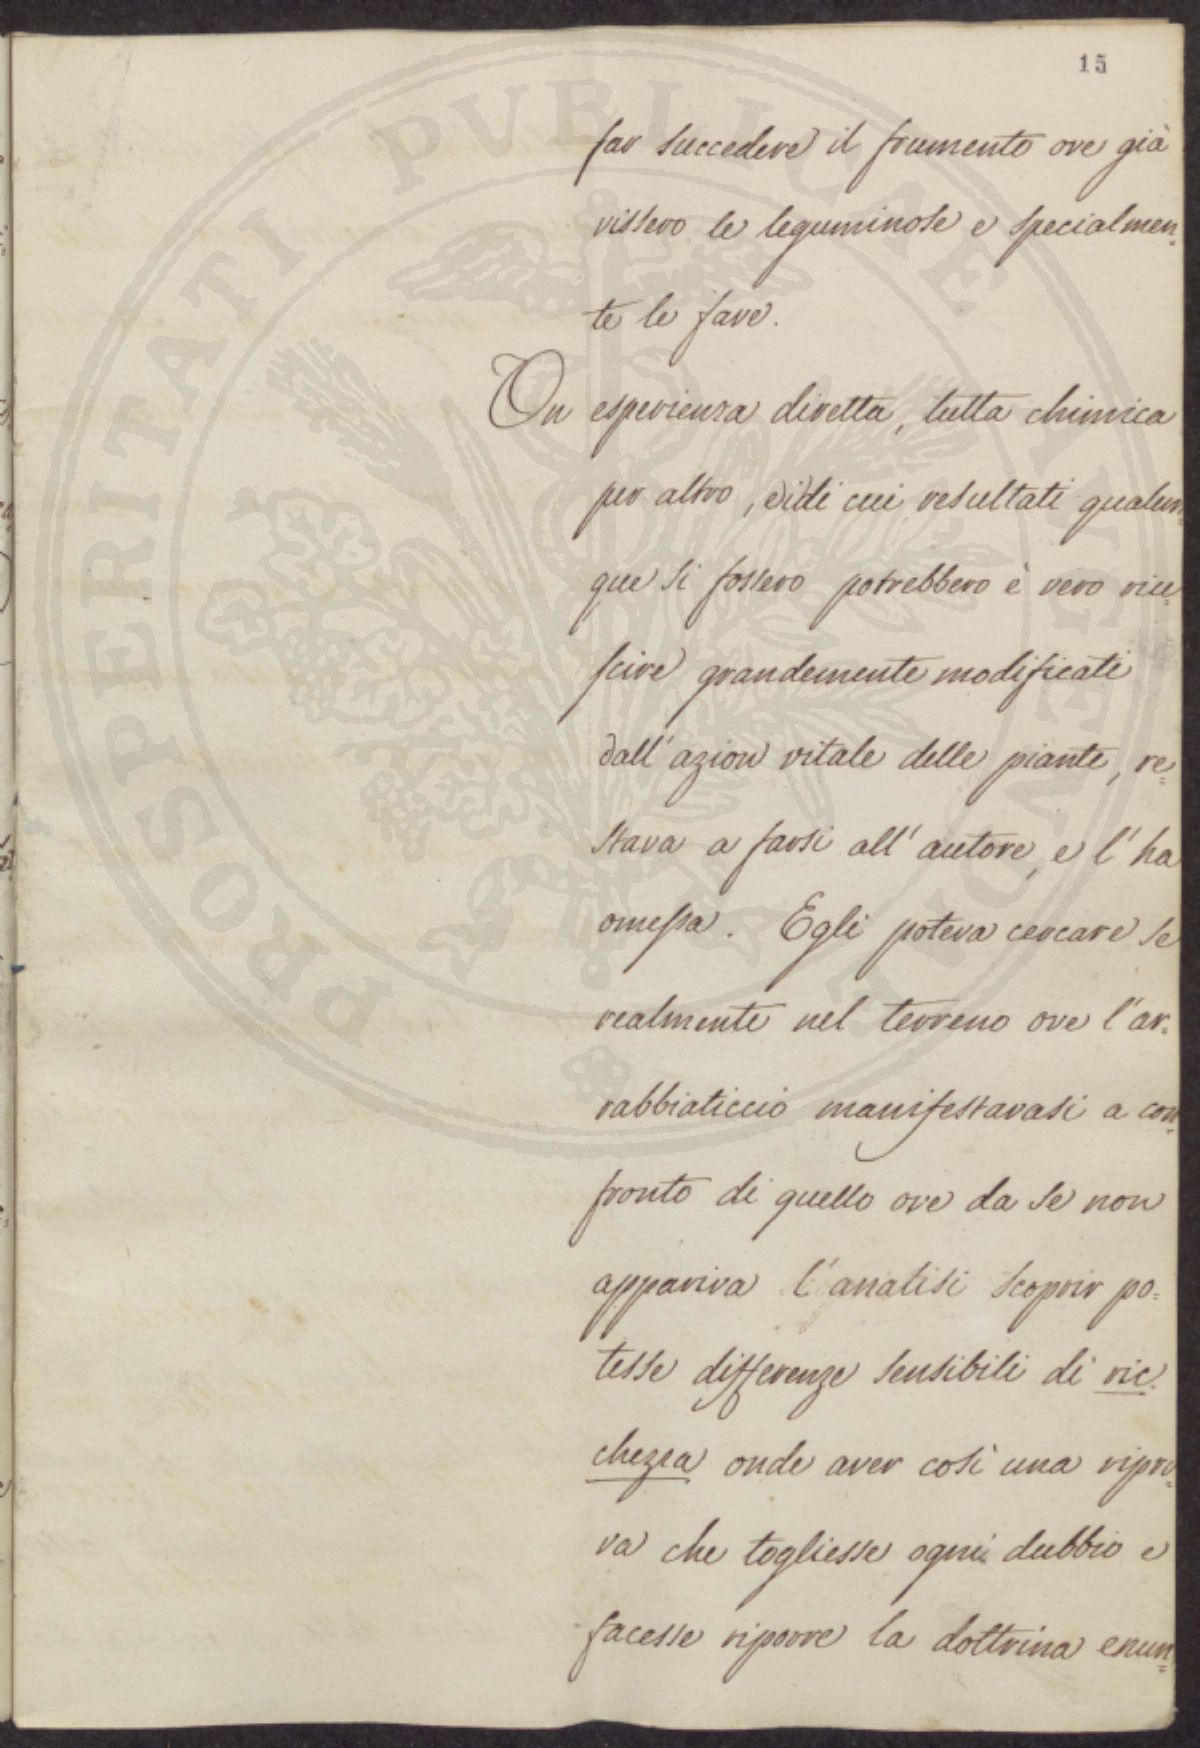 15
far succedere il frumento ove già
vissero le leguminose e specialmen=
te le fave.
Un esperienza diretta, tutta chimica
per altro, e i di cui resultati qualun=
que si fossero potrebbero è vero riu=
scire grandemente modificati
dall'azion vitale delle piante, re=
stava a farsi all'autore, e l'ha
omessa. Egli poteva cercare se
realmente nel terreno ove l'ar=
rabbiaticcio manifestavasi a con=
fronto di quello ove da se non
appariva l'analisi scoprir po=
tesse differenze sensibili di ric=
chezza onde aver così una ripro=
va che togliesse ogni dubbio e
facesse riporre la dottrina enun=
PROSPERITATI PUBLICAE AUGENDAE